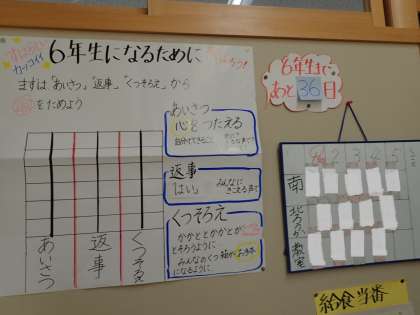 すばらしい
カッコイイ
6年生になるために
まずは「あいさつ」「返事」「くつそろえ」から
をためよう
あいさつ
心をつたえる
返事
「はい」
みんなに
きこえる声で
くつそろえ
かかととかかとが
とそろうように
みんなのくつ箱がお手本
になるように。
あいさつ
返事
くつそろえ
6年生まで
あと36日
1 2 3 4 5
南
北ろうか
教室
給食当番